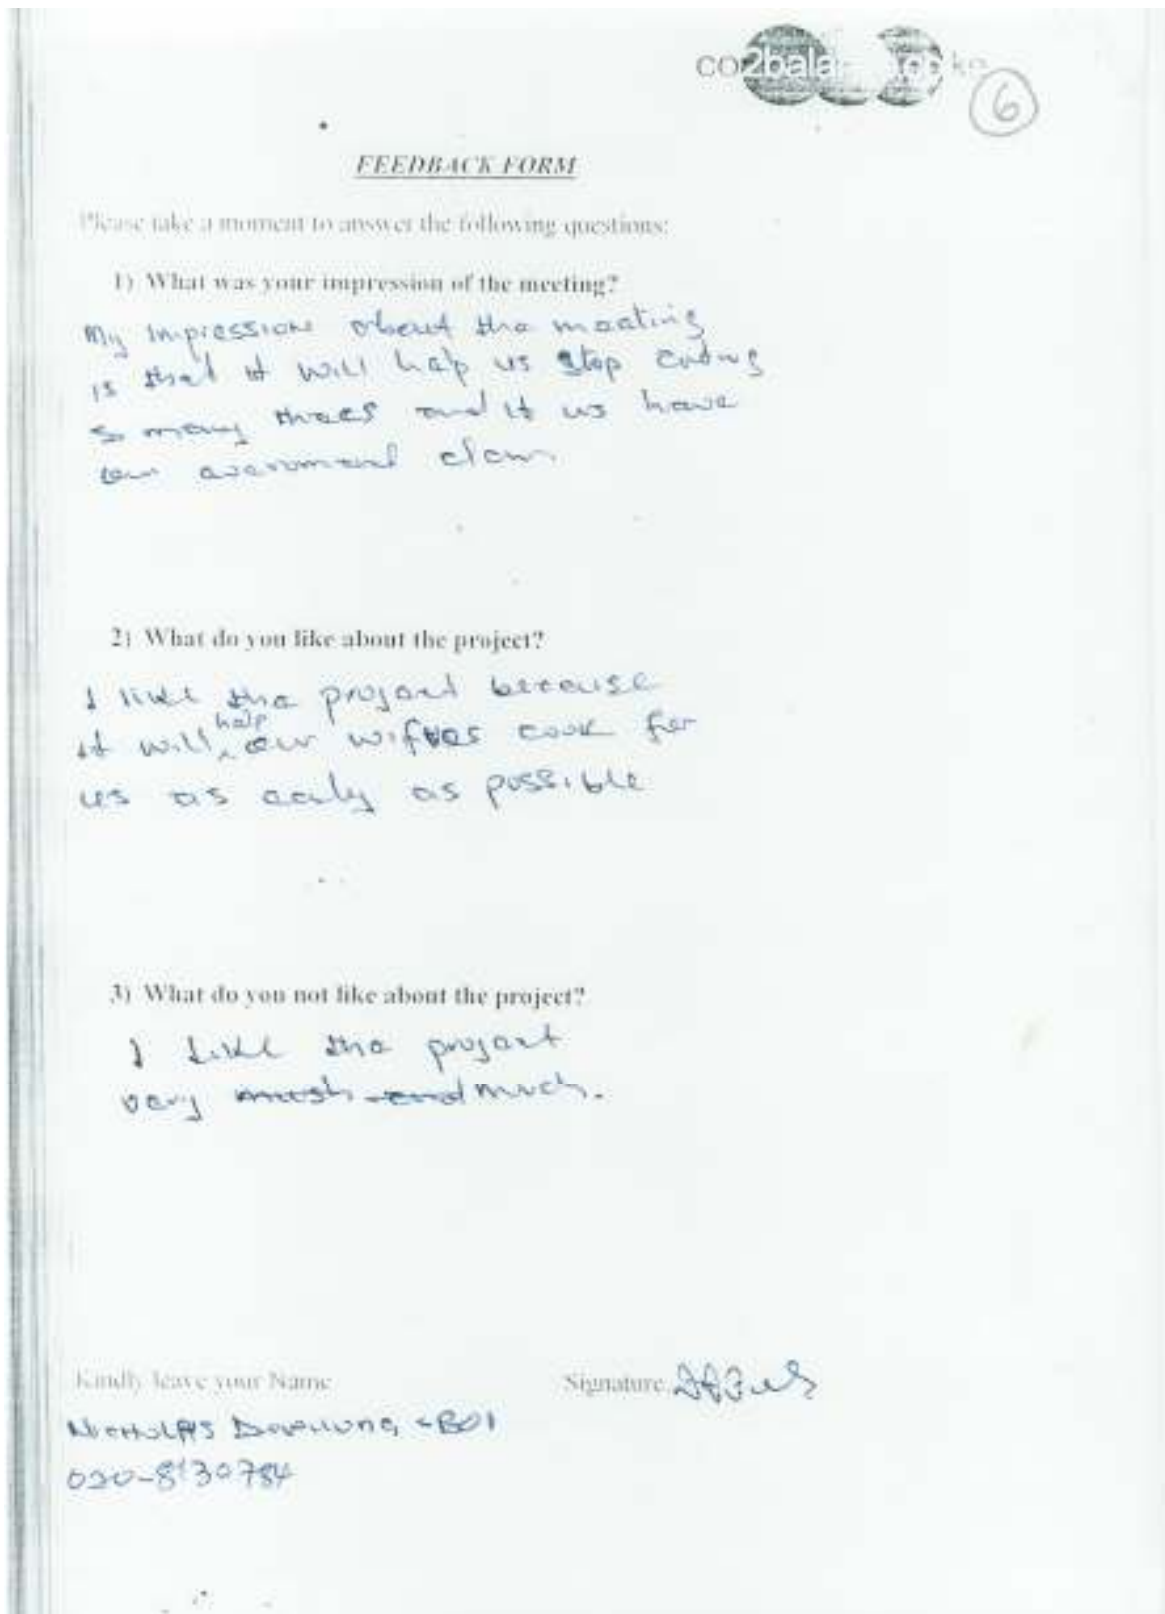 co2bala
6
FEEDBACK FORM
Please take a moment to answer the following questions:
1) What was your impression of the meeting?
My impression about the meeting
is that it will help us stop cuting
so many threes and it us have
our
2) What do you like about the project?
I like the project because
it will help our wifves cook for
us as early as possible
3) What do you not like about the project?
I like the project
very mush and much.
Kindly leave your Name
Signature
Nicholas
020-8130784